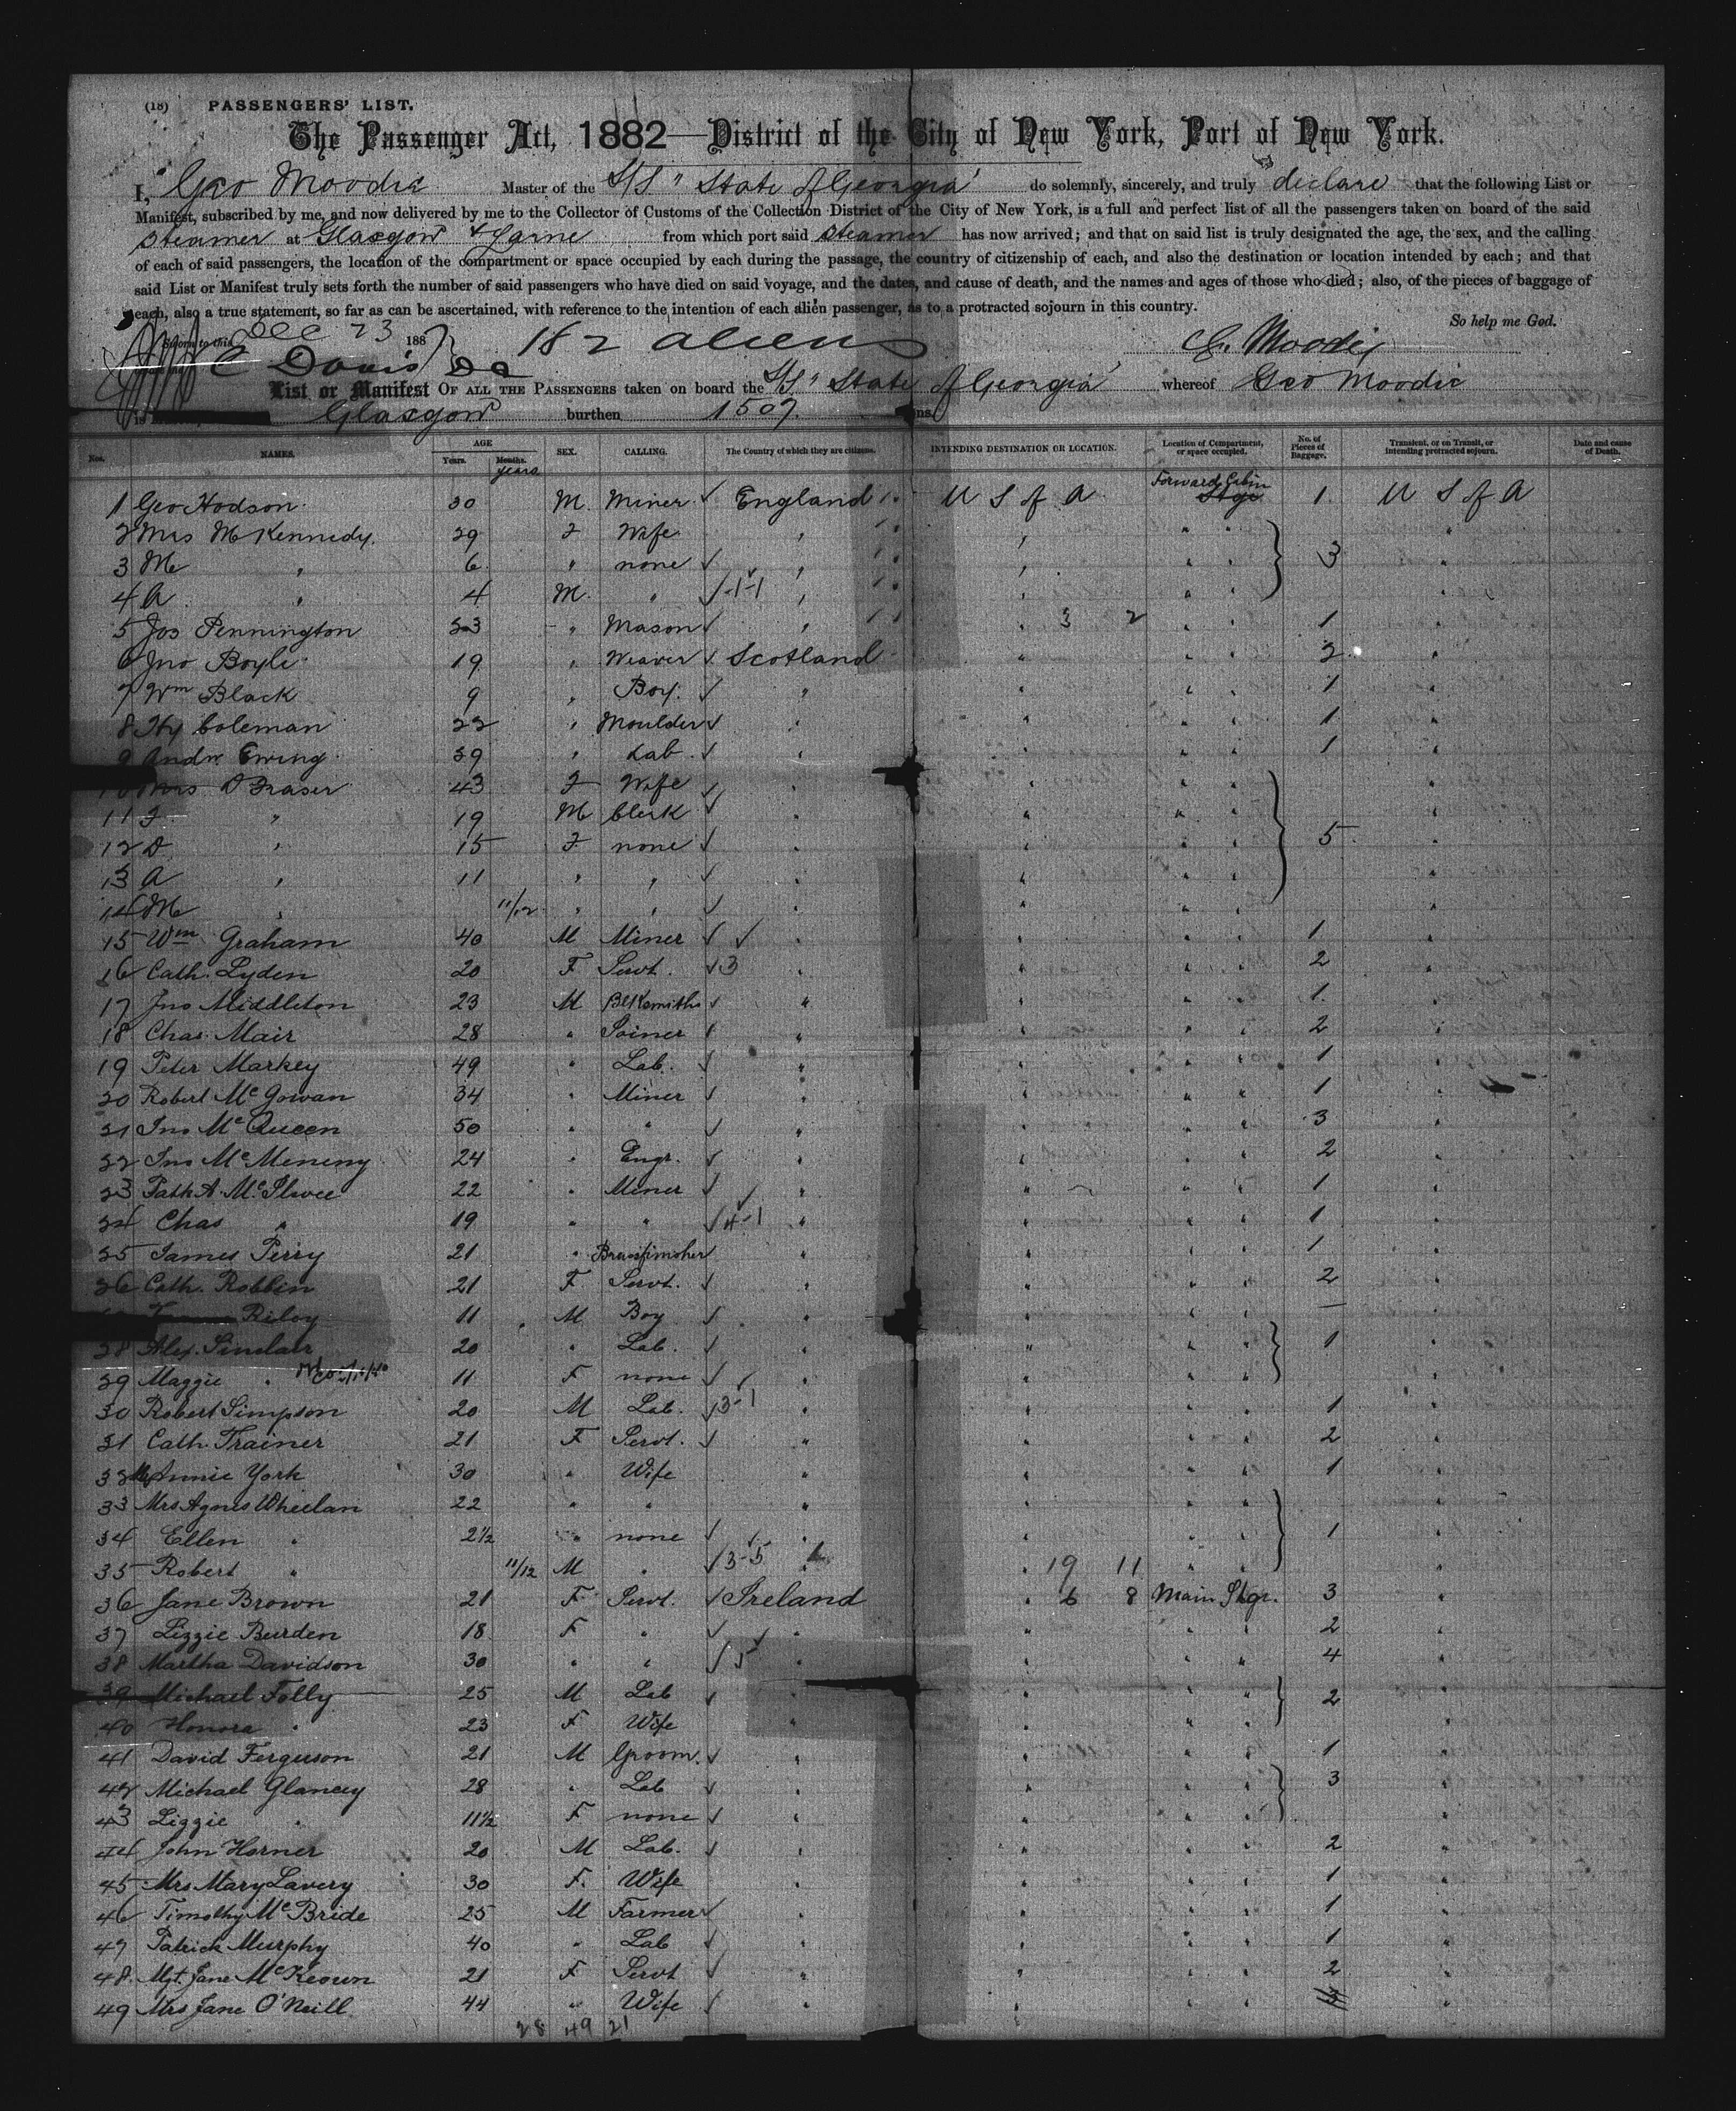 (18) PASSENGERS' LIST.
The Passenger Act, 1882—District of the City of New York, Port of New York.
I, Geo Moodie Master of the S/S "State of Georgia" do solemnly, sincerely, and truly declare that the following List or
Manifest, subscribed by me, and now delivered by me to the Collector of Customs of the Collection District of the City of New York, is a full and perfect list of all the passengers taken on board of the said
Steamer at Glasgow & Larne from which port said Steamer has now arrived; and that on said list is truly designated the age, the sex, and the calling
of each of said passengers, the location of the compartment or space occupied by each during the passage, the country of citizenship of each, and also the destination or location intended by each; and that
said List or Manifest truly sets forth the number of said passengers who have died on said voyage, and the dates, and cause of death, and the names and ages of those who died; also, of the pieces of baggage of
each, also a true statement, so far as can be ascertained, with reference to the intention of each alien passenger, as to a protracted sojourn in this country.
So help me God.
Sworn to this DEC 23 1887 182 aliens G. Moodie
C Davis
List or Manifest OF ALL THE PASSENGERS taken on board the S/S "State of Georgia" whereof Geo Moodie
Glasgow burthen 1507
Nos. NAMES. AGE Years. Months. SEX. CALLING. The Country of which they are citizens. INTENDING DESTINATION OR LOCATION. Location of Compartment, or space occupied. No. of Pieces of Baggage. Transient, or on Transit, or intending protracted sojourn. Date and cause of Death.
years
1 Geo Hodson 30 M. Miner England U S of A Forward Cabin Stge 1 U S of A
2 Mrs M Kennedy 29 F Wife
3 M " 6 " none 3
4 A " 4 M. " 1-1
5 Jos Pennington 23 " Mason 3 2 1
6 Jno Boyle 19 " Weaver Scotland 2
7 Wm Black 9 " Boy 1
8 Hy Coleman 22 " Moulder 1
9 Andw Ewing 29 " Lab 1
10 Mrs D Fraser 43 F Wife
11 J " 19 M Clerk
12 D " 15 F none 5
13 A " 11 " "
14 M " 11/12 " "
15 Wm Graham 40 M Miner 1
16 Cath. Lyden 20 F Servt. 3 2
17 Jno Middleton 23 M Blksmith 1
18 Chas. Mair 28 " Joiner 2
19 Peter Markey 49 " Lab. 1
20 Robert McGowan 34 " Miner 1
21 Jno McQueen 50 " " 3
22 Jno McMeneny 24 " Engr. 2
23 Patk A. McIlwee 22 " Miner 1
24 Chas " 19 " " 4-1 1
25 James Perry 21 " Brassfinisher 1
26 Cath. Robbin 21 F Servt. 2
Riley 11 M Boy —
28 Alex. Sinclair 20 " Lab. 1
29 Maggie " 11 F none
30 Robert Simpson 20 M Lab. 3-1 1
31 Cath. Trainer 21 F Servt. 2
32 Annie York 30 " Wife 1
33 Mrs Agnes Wheelan 22 " "
34 Ellen " 2½ " none 1
35 Robert " 11/12 M " 3-5 19 11
36 Jane Brown 21 F Servt. Ireland 6 8 Main Stge. 3
37 Lizzie Burden 18 F " 2
38 Martha Davidson 30 " " 5 4
39 Michael Folly 25 M Lab 2
40 Honora " 23 F Wife
41 David Ferguson 21 M Groom. 1
42 Michael Glancey 28 " Lab 3
43 Lizzie " 11½ F none
44 John Horner 20 M Lab. 2
45 Mrs Mary Lavery 30 F. Wife 1
46 Timothy McBride 25 M Farmer 1
47 Patrick Murphy 40 " Lab 1
48 Mgt. Jane McKeown 21 F Servt 2
49 Mrs Jane O'Neill 44 " Wife 3
28 49 21